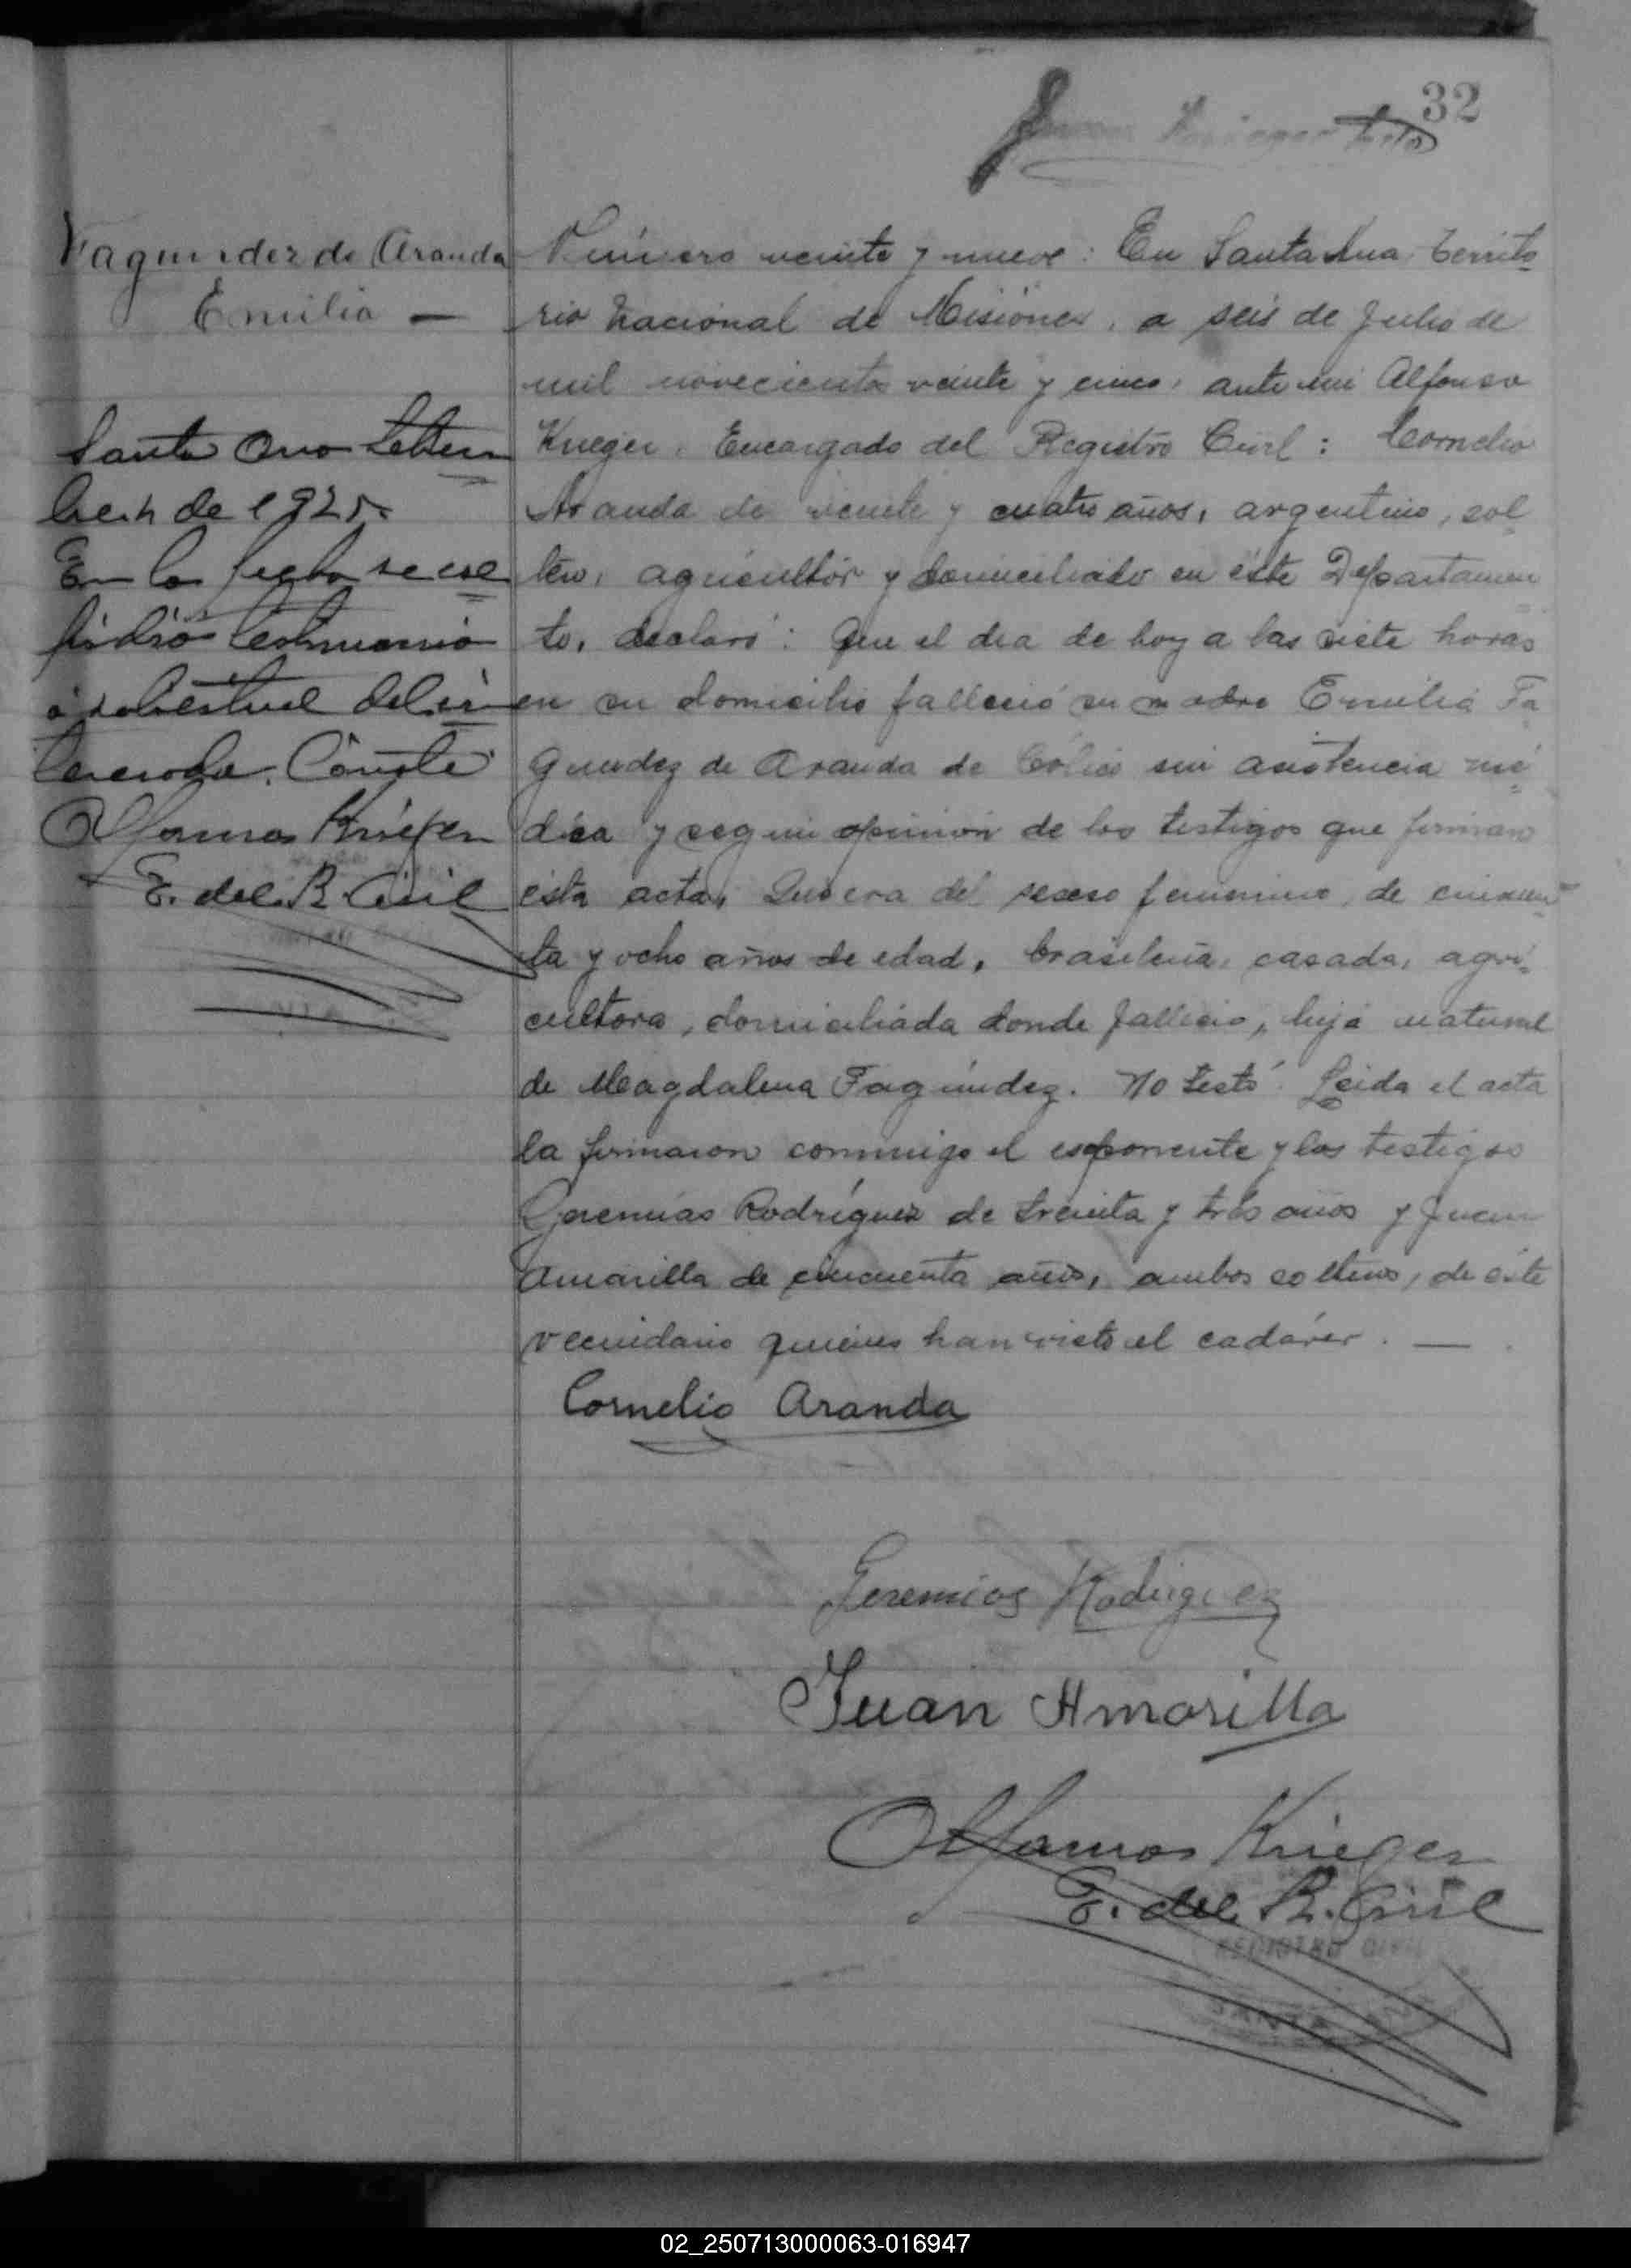 32
Fagundez de Aranda
Emilia —
Santa Ana Setiem
bre 4 de 1925.
En la fecha se ex
pidió testimonio
á solicitud del in
teresado. Conste
Alfonso Krieger
E. del R. Civil
Número veinte y nueve: En Santa Ana, Territo
rio Nacional de Misiones, a seis de Julio de
mil novecientos veinte y cinco, ante mi Alfonso
Krieger, Encargado del Registro Civil: Cornelio
Aranda de veinte y cuatro años, argentino, sol
tero, agricultor y domiciliado en éste Departamen
to, declaró: Que el dia de hoy a las siete horas
en su domicilio falleció su madre Emilia Fa
gundez de Aranda de Cólico sin asistencia mé
dica y segun opinión de los testigos que firman
ésta acta. Que era del sexo femenino, de cincuen
ta y ocho años de edad, brasileña, casada, agri
cultora, domiciliada donde falleció, hija natural
de Magdalena Fagúndez. No testó. Leida el acta
la firmaron conmigo el esponente y los testigos
Geremías Rodríguez de treinta y tres años y Juan
Amarilla de cincuenta años, ambos solteros, de éste
vecindario quienes han visto el cadáver. —
Cornelio Aranda
Geremias Rodriguez
Juan Amarilla
Alfonso Krieger
E. del R. Civil
REGISTRO CIVIL
SANTA ANA
02_250713000063-016947